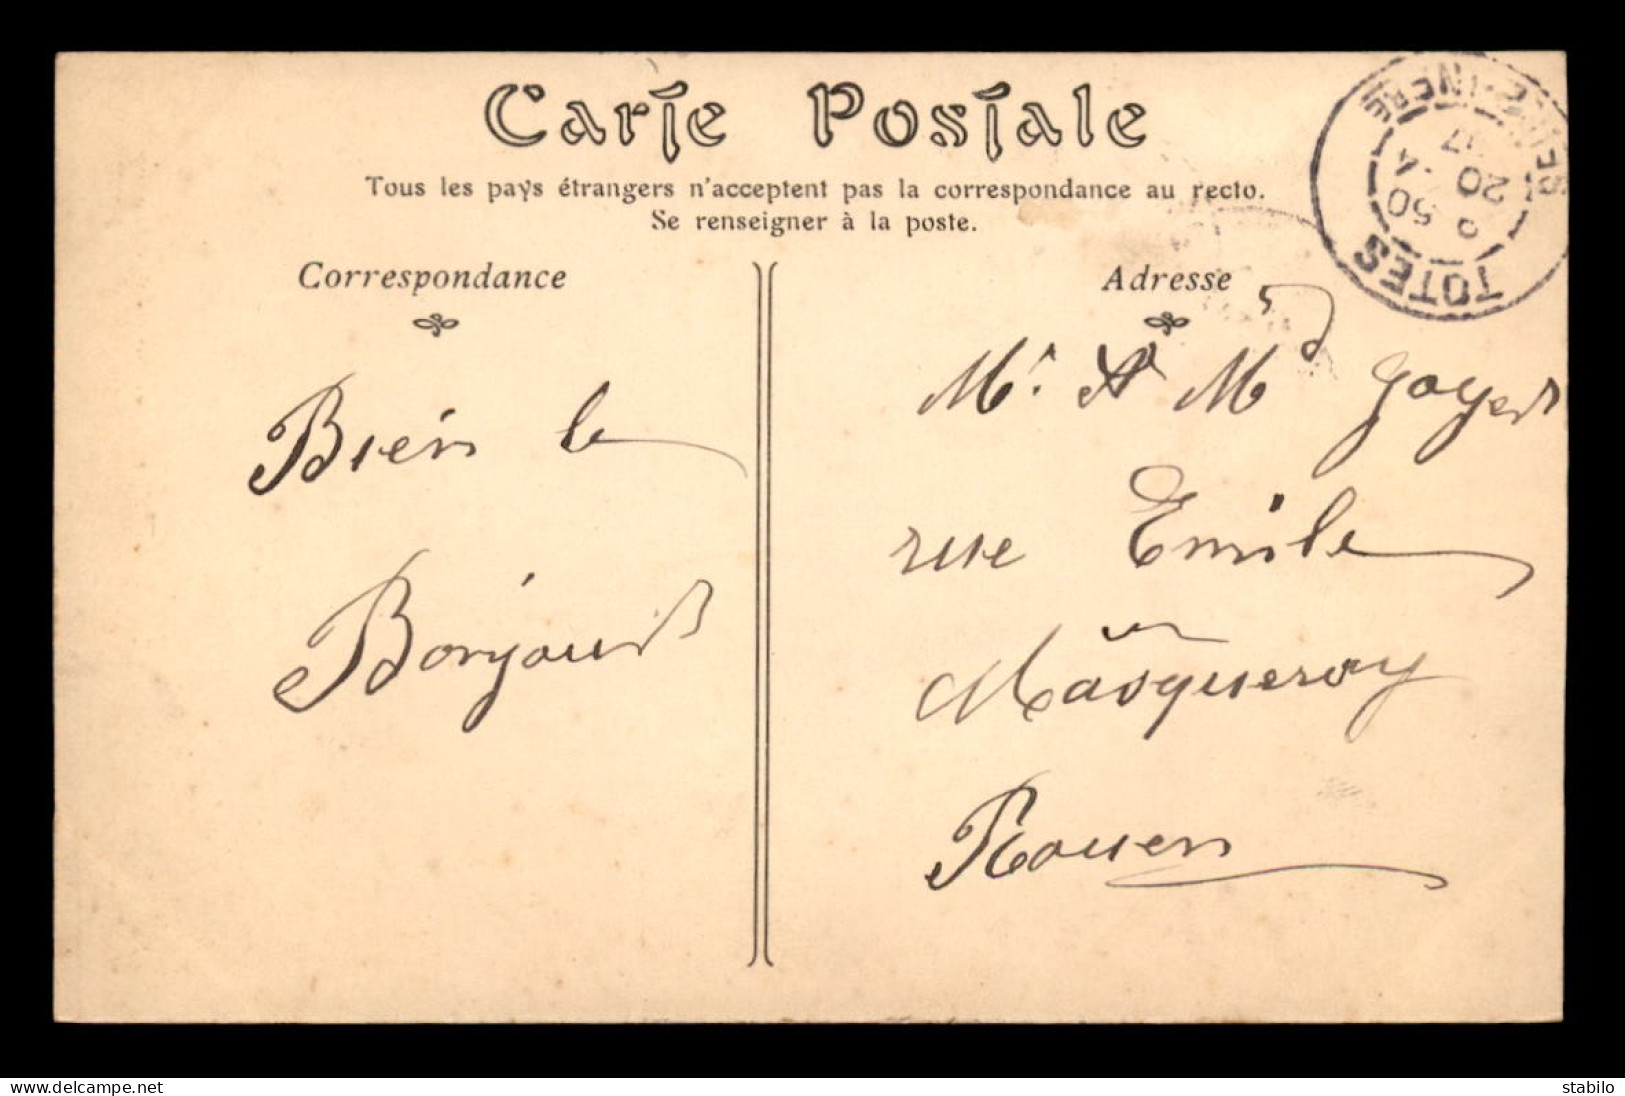 Carte Postale
Tous les pays étrangers n'acceptent pas la correspondance au recto.
Se renseigner à la poste.
Correspondance
Adresse
TOTES
SEINE-INFRE
17
20
50
4
Bien le
Bonjour
Mr & Md Goyer
rue Emile
Masqueray
Rouen
www.delcampe.net
stabilo